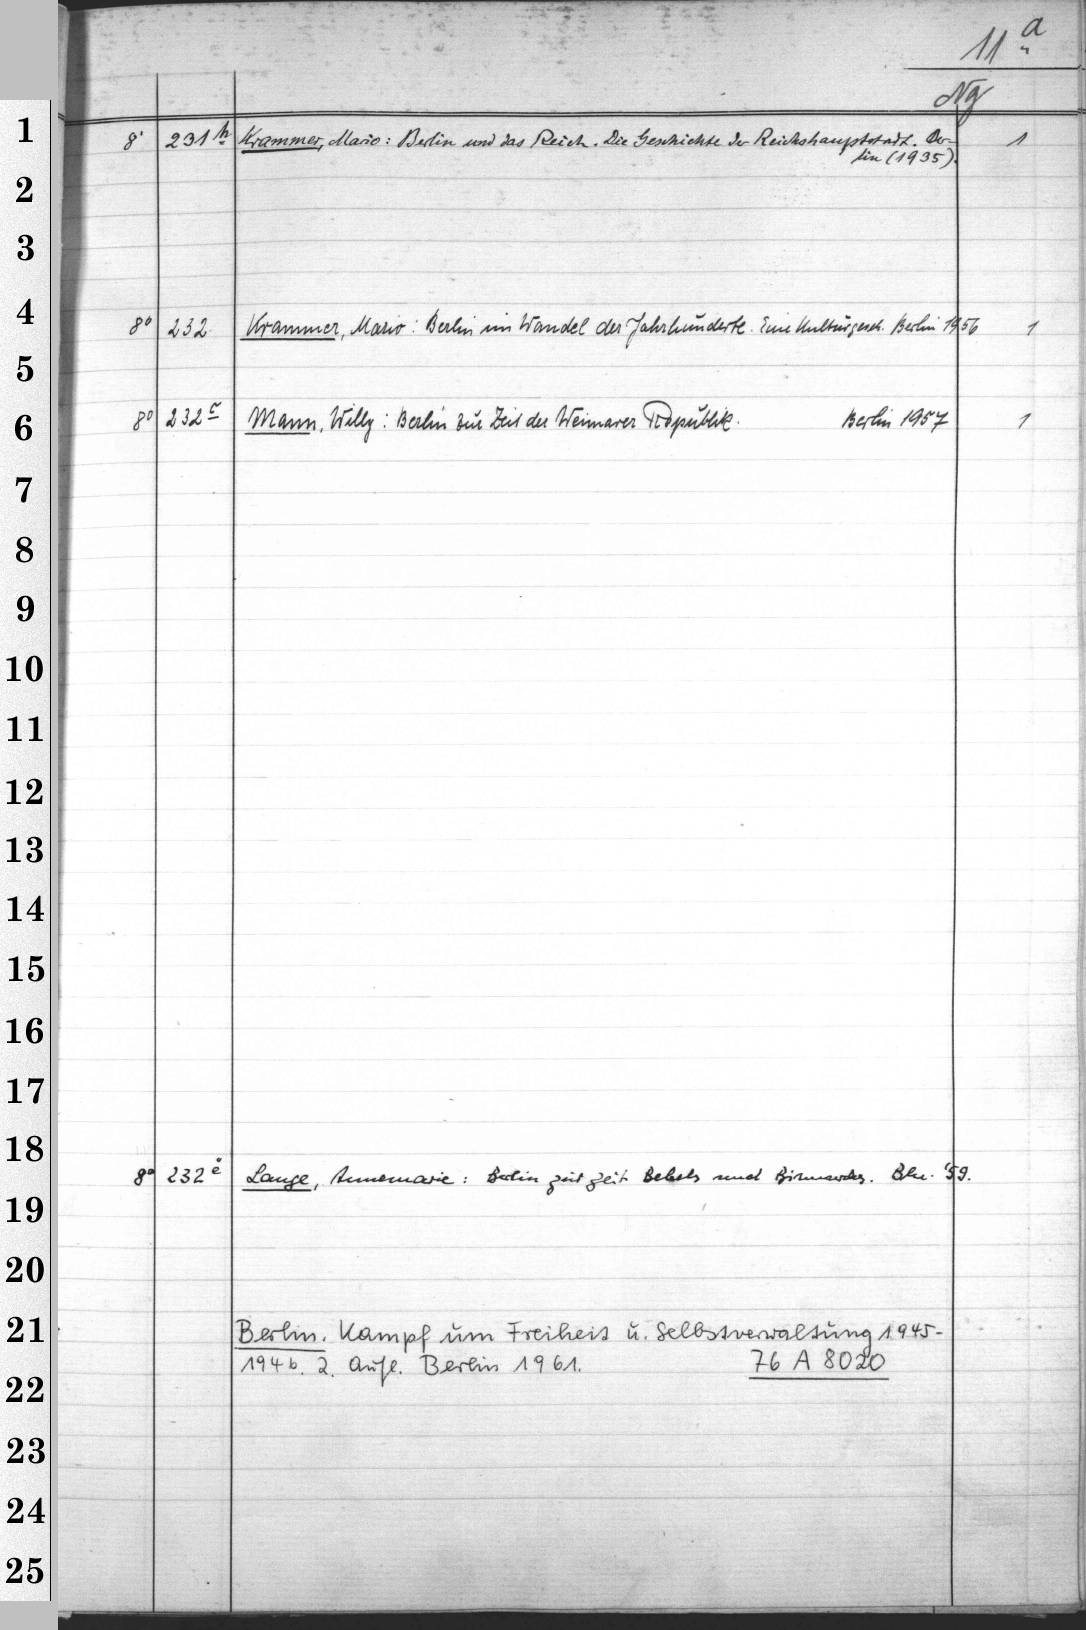 11 a
Ng
1
8° 231 h Krammer, Mario: Berlin und das Reich. Die Geschichte der Reichshauptstadt. Ber- 1
lin (1935).
2
3
4 8° 232 Krammer, Mario: Berlin im Wandel der Jahrhunderte. Eine Kulturgesch. Berlin 1956 1
5
6 8° 232 c Mann, Willy: Berlin zur Zeit der Weimarer Republik. Berlin 1957 1
7
8
9
10
11
12
13
14
15
16
17
18 8° 232 e Lange, Annemarie: Berlin zur Zeit Bebels und Bismarcks. Bln. '59.
19
20
21 Berlin. Kampf um Freiheit u. Selbstverwaltung 1945-
1946. 2. Aufl. Berlin 1961. 76 A 8020
22
23
24
25